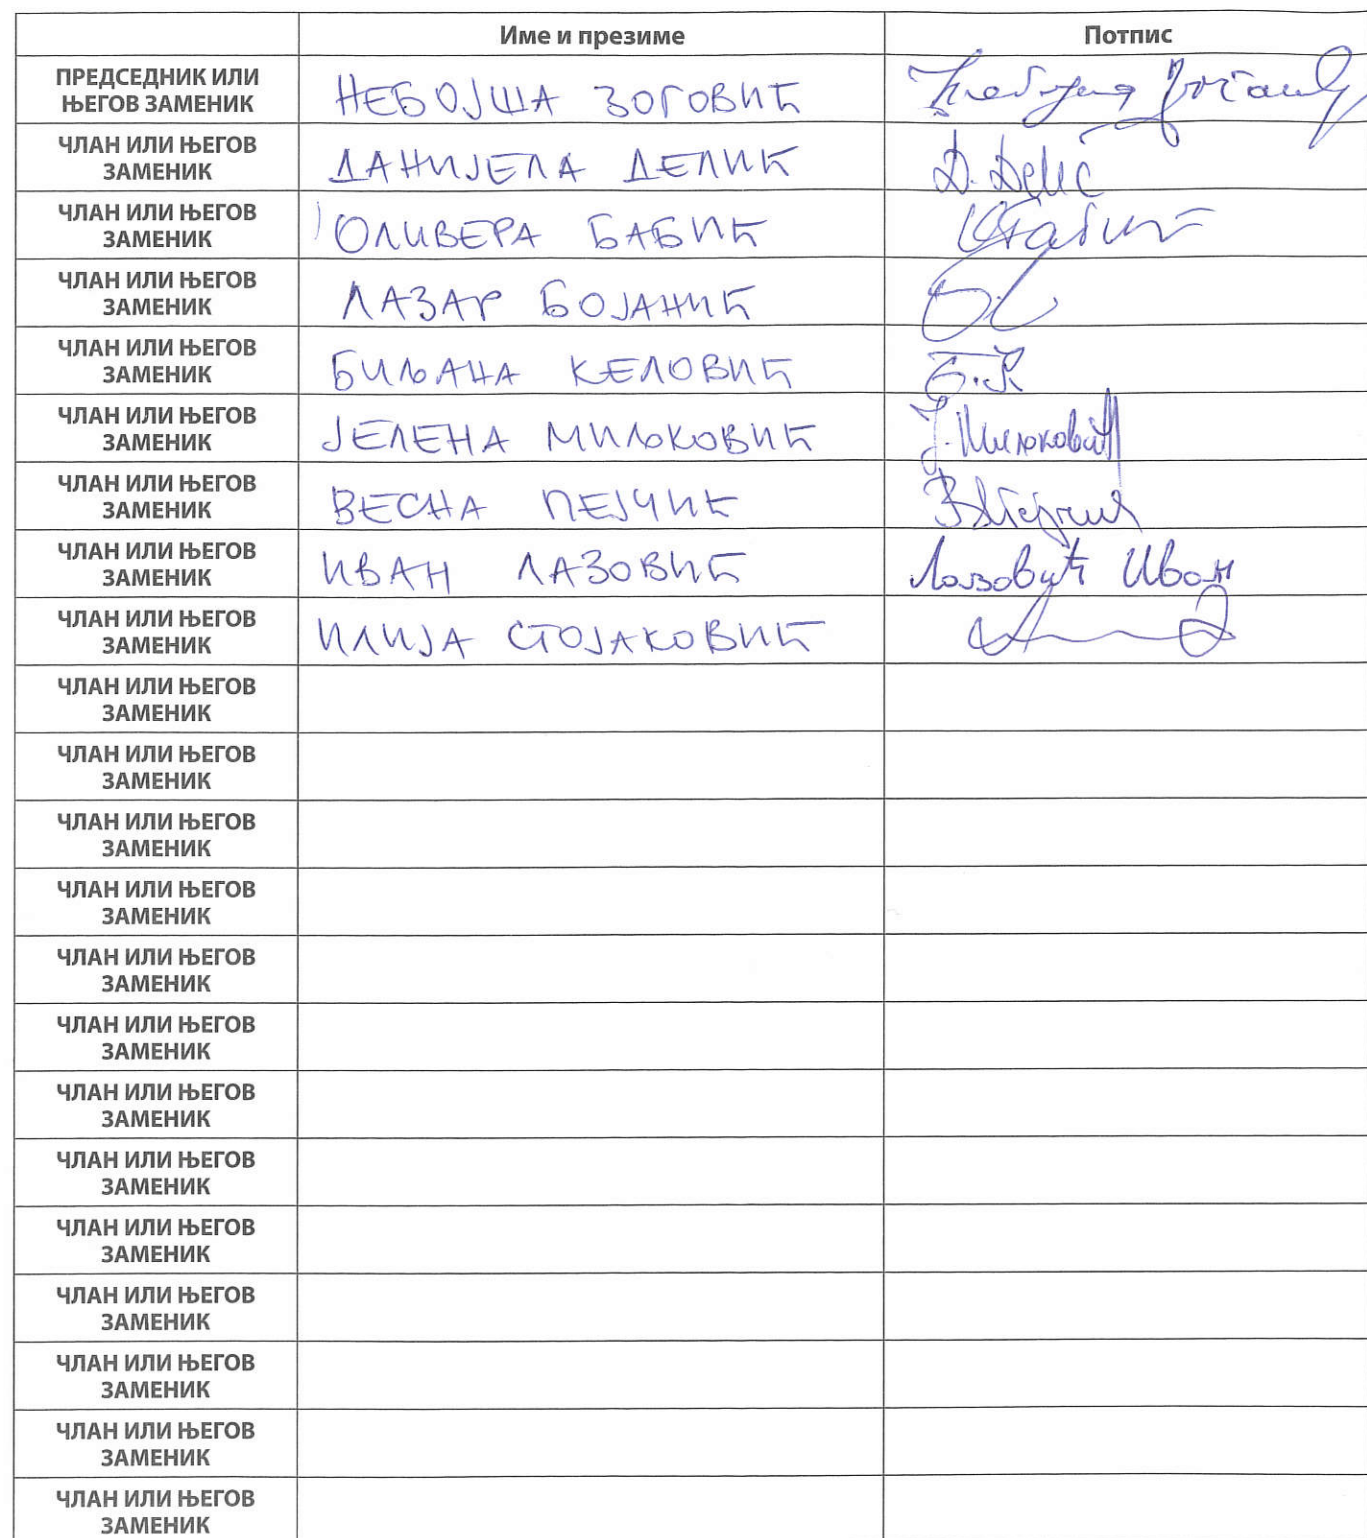 Име и презиме Потпис
ПРЕДСЕДНИК ИЛИ
ЊЕГОВ ЗАМЕНИК
НЕБОЈША ЗОГОВИЋ
ЧЛАН ИЛИ ЊЕГОВ
ЗАМЕНИК
ДАНИЈЕЛА ДЕЛИЋ
D. Delić
ЧЛАН ИЛИ ЊЕГОВ
ЗАМЕНИК
ОЛИВЕРА БАБИЋ
ЧЛАН ИЛИ ЊЕГОВ
ЗАМЕНИК
ЛАЗАР БОЈАНИЋ
ЧЛАН ИЛИ ЊЕГОВ
ЗАМЕНИК
БИЉАНА КЕЛОВИЋ
Б.К
ЧЛАН ИЛИ ЊЕГОВ
ЗАМЕНИК
ЈЕЛЕНА МИЉКОВИЋ
Ј. Миљковић
ЧЛАН ИЛИ ЊЕГОВ
ЗАМЕНИК
ВЕСНА ПЕЈЧИЋ
ЧЛАН ИЛИ ЊЕГОВ
ЗАМЕНИК
ИВАН ЛАЗОВИЋ
Лазовић Иван
ЧЛАН ИЛИ ЊЕГОВ
ЗАМЕНИК
ИЛИЈА СТОЈАКОВИЋ
ЧЛАН ИЛИ ЊЕГОВ
ЗАМЕНИК
ЧЛАН ИЛИ ЊЕГОВ
ЗАМЕНИК
ЧЛАН ИЛИ ЊЕГОВ
ЗАМЕНИК
ЧЛАН ИЛИ ЊЕГОВ
ЗАМЕНИК
ЧЛАН ИЛИ ЊЕГОВ
ЗАМЕНИК
ЧЛАН ИЛИ ЊЕГОВ
ЗАМЕНИК
ЧЛАН ИЛИ ЊЕГОВ
ЗАМЕНИК
ЧЛАН ИЛИ ЊЕГОВ
ЗАМЕНИК
ЧЛАН ИЛИ ЊЕГОВ
ЗАМЕНИК
ЧЛАН ИЛИ ЊЕГОВ
ЗАМЕНИК
ЧЛАН ИЛИ ЊЕГОВ
ЗАМЕНИК
ЧЛАН ИЛИ ЊЕГОВ
ЗАМЕНИК
ЧЛАН ИЛИ ЊЕГОВ
ЗАМЕНИК